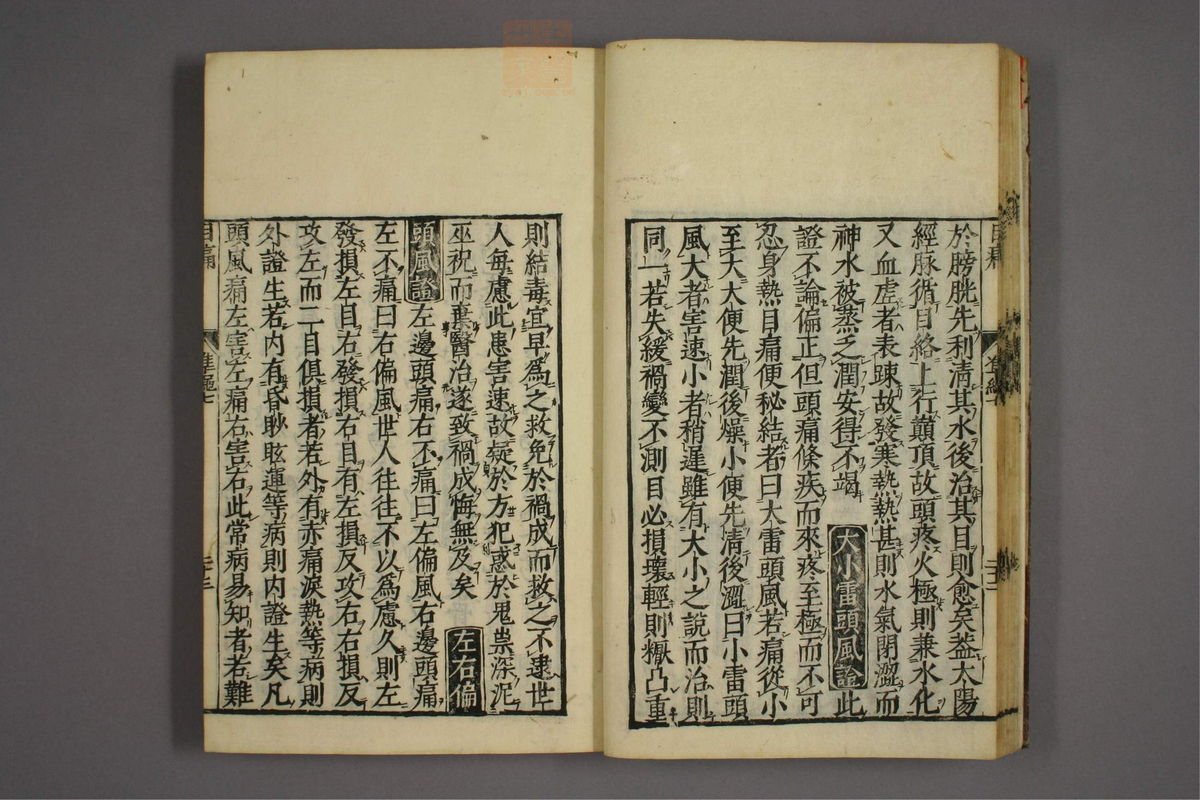 於膀胱先利清其水後治其目則愈矣盖太陽
經脉循目絡上行巔頂故頭疼火極則兼水化
又血虚者表踈故發寒熱熱甚則水氣閉澀而
神水被蒸乏潤安得不竭 大小雷頭風證 此
證不論偏正但頭痛條疾而來疼至極而不可
忍身熱目痛便秘結者曰大雷頭風若痛從小
至大大便先潤後燥小便先清後澀曰小雷頭
風大者害速小者稍遲雖有大小之說而治則
同一若失緩禍變不測目必損壞輕則凸重
則結毒宜早爲之救免於禍成而救之不逮世
人每慮此患害速故疑於方犯惑於鬼祟深泥
巫祝而棄醫治遂致禍成悔無及矣 左右偏
頭風證 左邊頭痛右不痛曰左偏風右邊頭痛
左不痛曰右偏風世人往往不以爲慮久則左
發損左目右發損右目有左損反攻右右損反
攻左而二目俱損者若外有赤痛淚熱等病則
外證生若内有昏眇眩運等病則内證生矣凡
頭風痛左害左痛右害右此常病易知者若難
準繩七